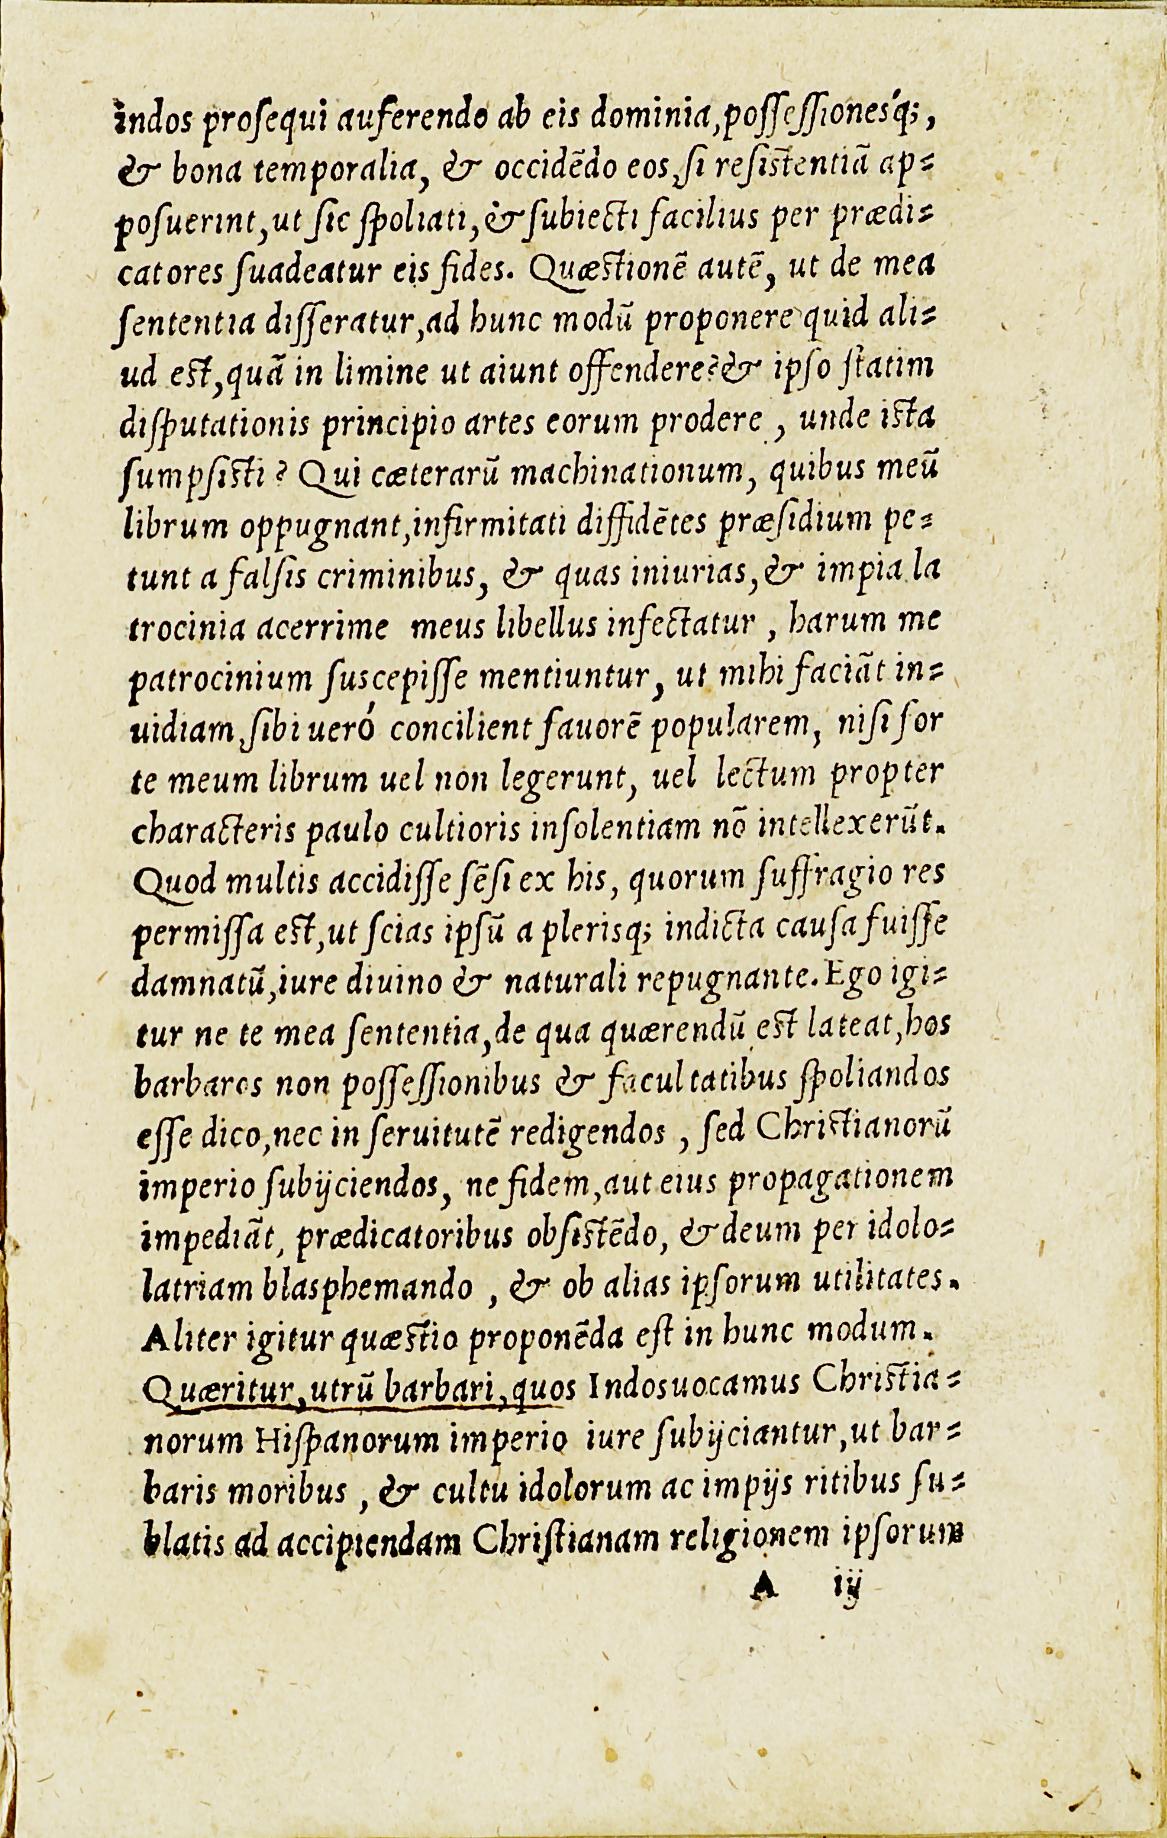 indos prosequi auferendo ab eis dominia, possessionesq́;,
& bona temporalia, & occidẽdo eos, si resistentiã ap=
posuerint, ut sic spoliati, & subiecti facilius per prædi=
catores suadeatur eis fides. Quæstionẽ autẽ, ut de mea
sententia disseratur, ad hunc modũ proponere quid ali=
ud est, quã in limine ut aiunt offendere? & ipso statim
disputationis principio artes eorum prodere, unde ista
sumpsisti? Qui cæterarũ machinationum, quibus meũ
librum oppugnant, infirmitati diffidẽtes præsidium pe=
tunt a falsis criminibus, & quas iniurias, & impia la
trocinia acerrime meus libellus insectatur, harum me
patrocinium suscepisse mentiuntur, ut mihi faciãt in=
uidiam, sibi ueró concilient fauorẽ popularem, nisi for
te meum librum uel non legerunt, uel lectum propter
characteris paulo cultioris insolentiam nõ intellexerũt.
Quod multis accidisse sẽsi ex his, quorum suffragio res
permissa est, ut scias ipsũ a plerisq; indicta causa fuisse
damnatũ, iure diuino & naturali repugnante. Ego igi=
tur ne te mea sententia, de qua quærendũ est lateat, hos
barbaros non possessionibus & facultatibus spoliandos
esse dico, nec in seruitutẽ redigendos, sed Christianorũ
imperio subijciendos, ne fidem, aut eius propagationem
impediãt, prædicatoribus obsistẽdo, & deum per idolo=
latriam blasphemando, & ob alias ipsorum utilitates.
Aliter igitur quæstio proponẽda est in hunc modum.
Quæritur, utrũ barbari, quos Indos uocamus Christia=
norum Hispanorum imperio iure subijciantur, ut bar=
baris moribus, & cultu idolorum ac impijs ritibus su=
blatis ad accipiendam Christianam religionem ipsorum
A iij